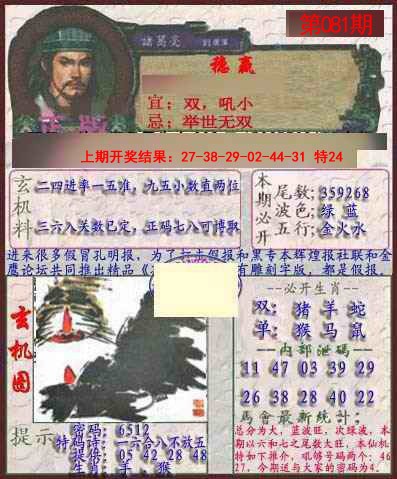 第081期
諸葛亮
稳赢
宜：双，吼小
忌：举世无双
上期开奖结果：27-38-29-02-44-31 特24
玄机料
二四进率一五准，九五小数直两位
三六八关数已定，正码七八可博取
本期必开
尾数；359268
波色；绿 蓝
五行；金火水
进来很多假冒孔明报，为了打击假报和黑专本辉煌报社联和金
鹰论坛共同推出精品《
有雕刻字版，都是假报.
玄机图
--必开生肖--
双：猪 羊 蛇
单：猴 马 鼠
--内部泄码--
11 47 03 39 29
26 38 28 40 22
马會最新统计：
总分为大，蓝波旺，次绿波，本
期以六和七之尾数大旺，本仙机
特如下推介，吼够号码两个：46
27，今期送与大家的密码为4.
提示
密码：6512
特码诗：一六合八不放五
05 42 28 48
生肖：羊、猴